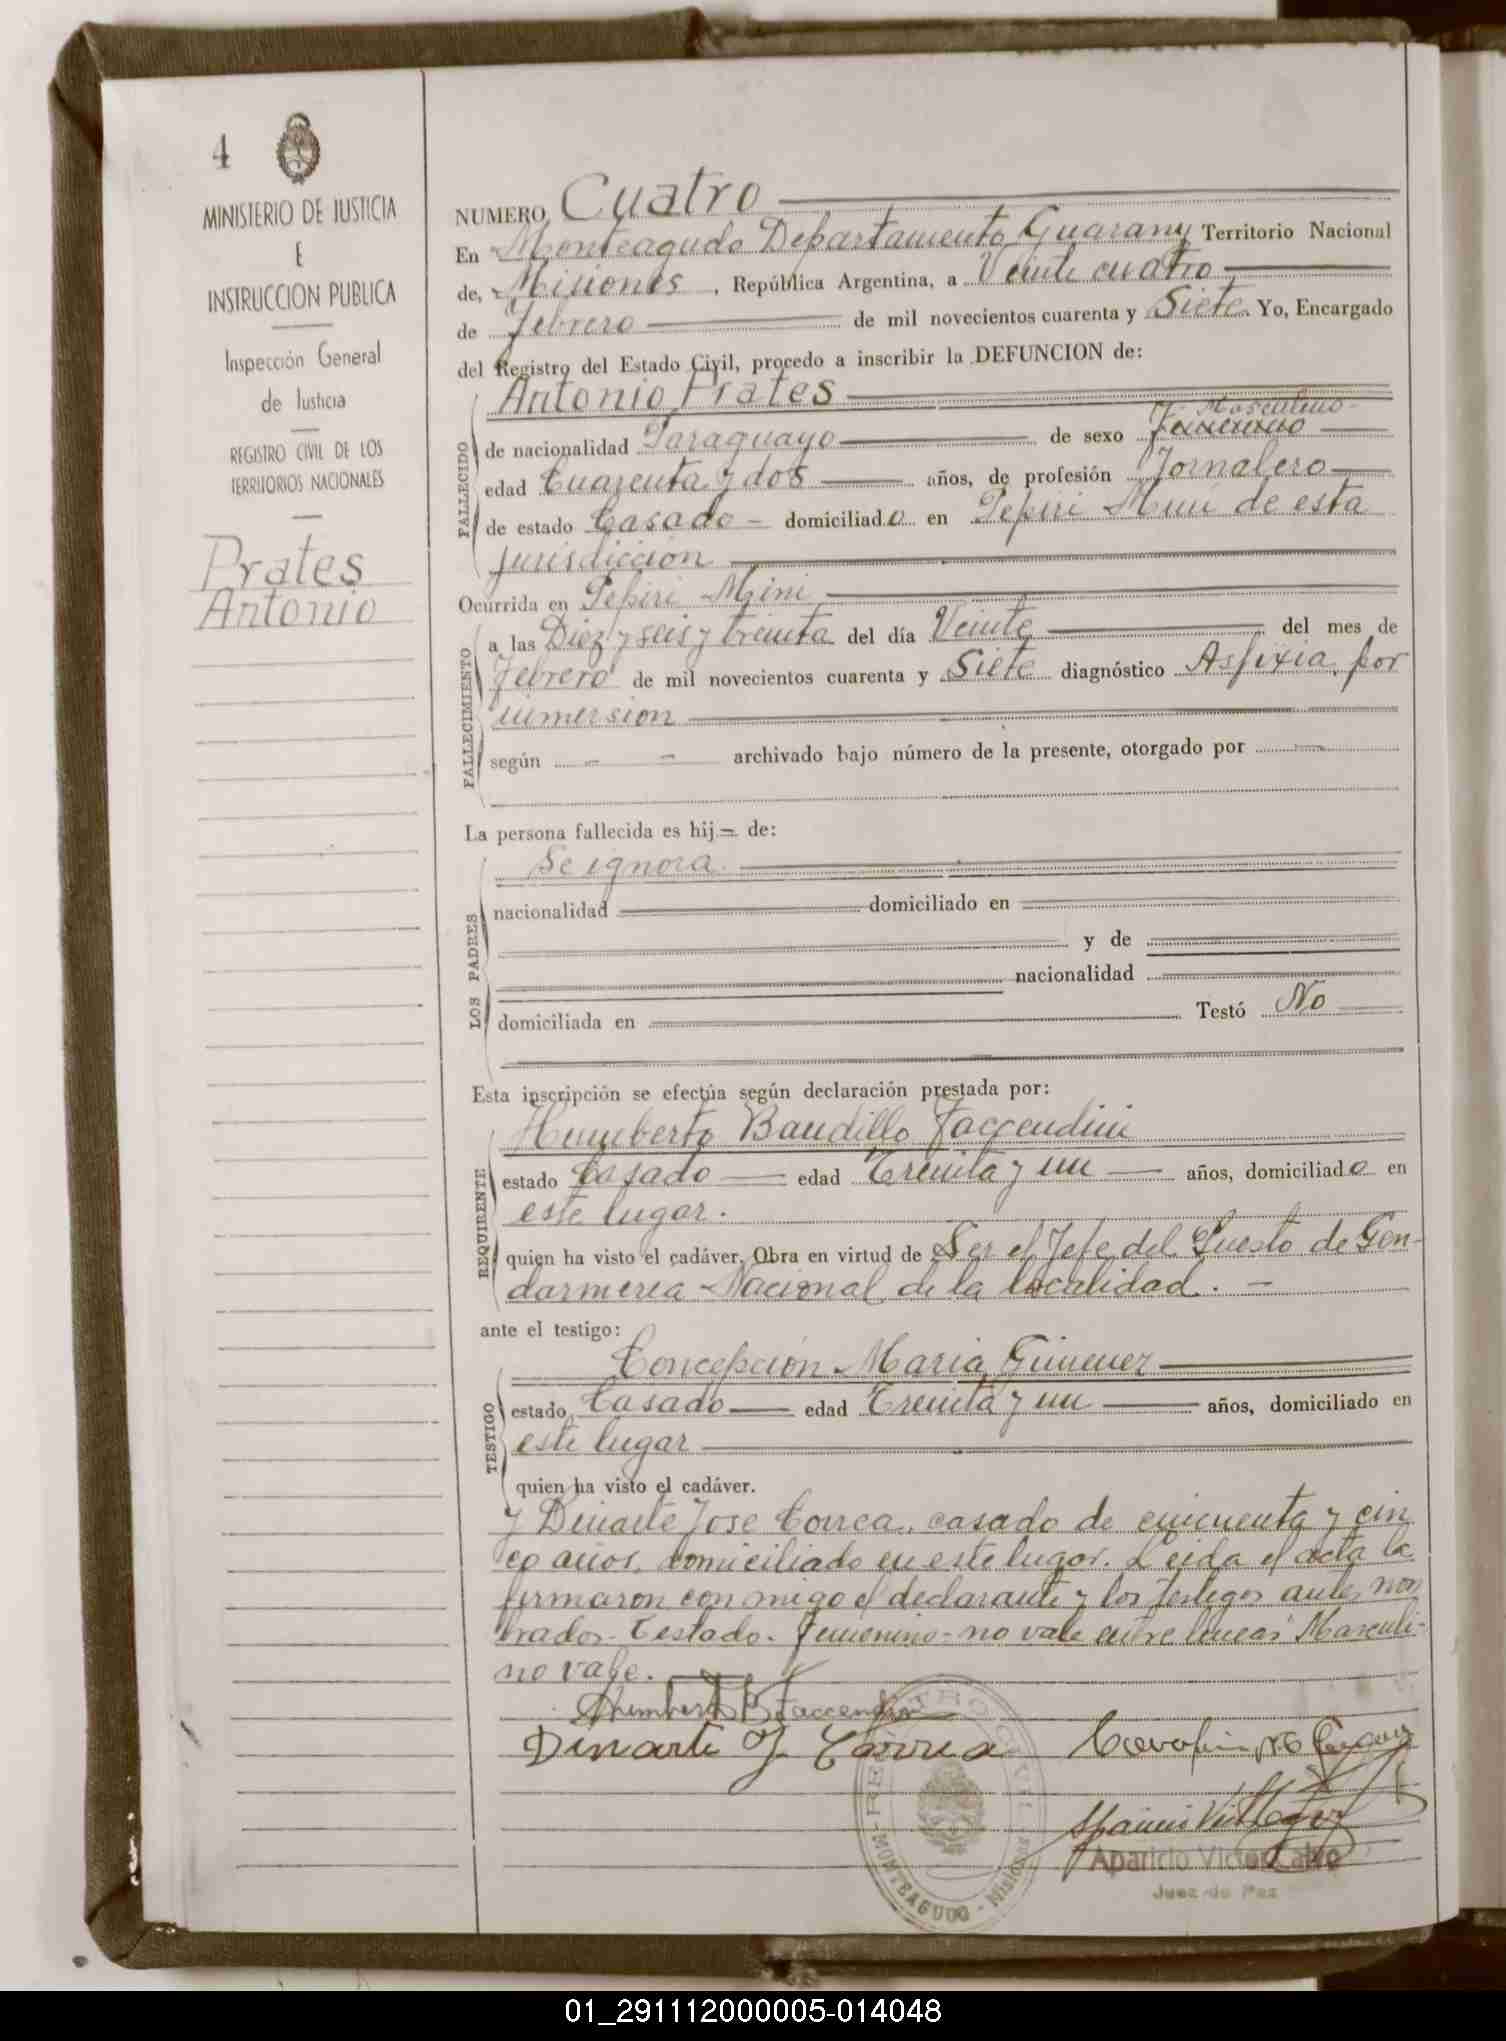 4
MINISTERIO DE JUSTICIA
E
INSTRUCCION PUBLICA
Inspección General
de Justicia
REGISTRO CIVIL DE LOS
TERRITORIOS NACIONALES
Prates
Antonio
NUMERO Cuatro
En Monteagudo Departamento Guarany Territorio Nacional
de, Misiones, República Argentina, a Veinte cuatro
de Febrero de mil novecientos cuarenta y Siete. Yo, Encargado
del Registro del Estado Civil, procedo a inscribir la DEFUNCION de:
FALLECIDO
Antonio Prates
Masculino
de nacionalidad Paraguayo de sexo Femenino
edad Cuarenta y dos años, de profesión Jornalero
de estado Casado domiciliado en Pepiri Mini de esta
jurisdicción
Ocurrida en Pepiri Mini
FALLECIMIENTO
a las Diez y seis y treinta del día Veinte del mes de
Febrero de mil novecientos cuarenta y Siete diagnóstico Asfixia por
inmersion
según - - archivado bajo número de la presente, otorgado por -
La persona fallecida es hij- de:
LOS PADRES
Se ignora
nacionalidad domiciliado en
y de
nacionalidad
domiciliada en Testó No
Esta inscripción se efectúa según declaración prestada por:
REQUIRENTE
Humberto Baudillo Faccendini
estado Casado edad Treinta y un años, domiciliado en
este lugar.
quien ha visto el cadáver. Obra en virtud de Ser el Jefe del Puesto de Gen-
darmeria Nacional de la localidad. -
ante el testigo:
TESTIGO
Concepción Maria Gimenez
estado Casado edad Treinta y un años, domiciliado en
este lugar
quien ha visto el cadáver.
y Dinarte Jose Correa, casado de cincuenta y cin
co años, domiciliado en este lugar. Leida el acta la
firmaron conmigo el declarante y los testigos antes nom
brados. Testado. Femenino- no vale entre lineas Masculi-
no vale.
Humberto B Faccendini
Dinarte J. Correa
REGISTRO CIVIL
MONTEAGUDO - Misiones
Aparicio Victor Calvo
Juez de Paz
01_291112000005-014048